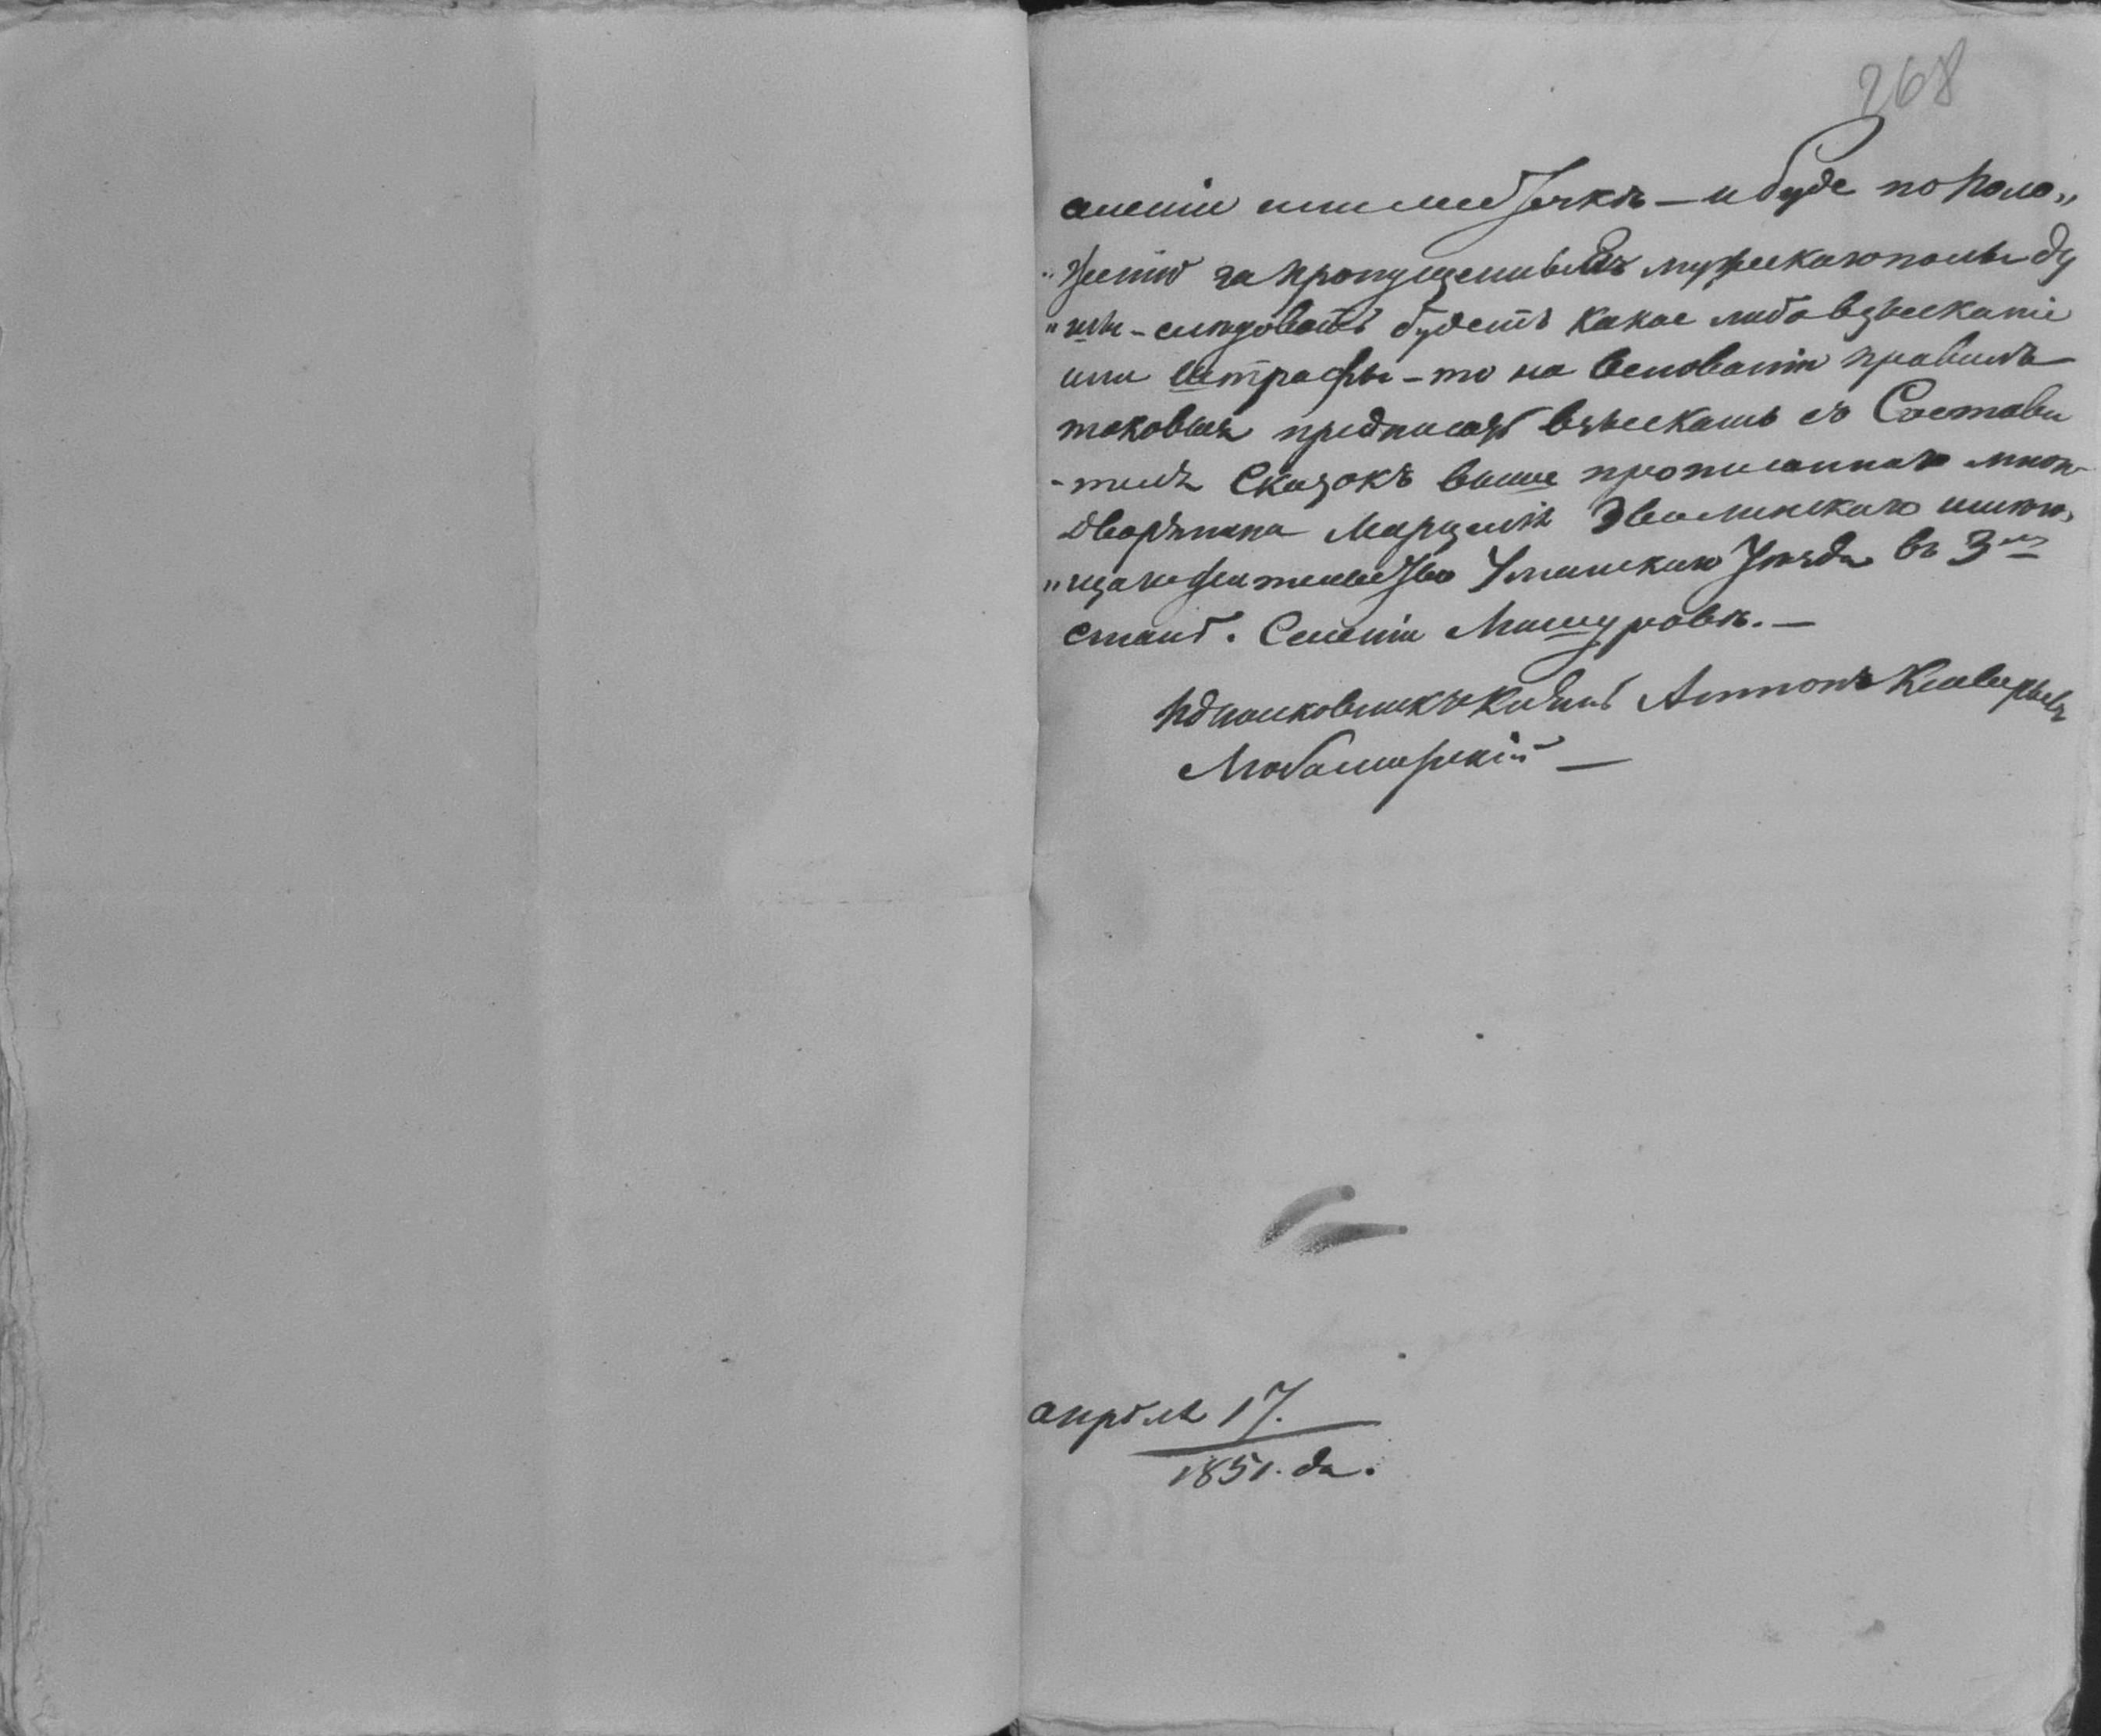 268
селеніи или местечкѣ — и буде по поло„
„женію за пропущенныхъ мужескаго пола ду
„шъ – слѣдовать будетъ какое либо взысканіе
или штрафы – то на основаніи правилъ
таковыя предписать взыскать съ Состави
-теля Сказокъ выше прописаннаго
дворянина Марцелія имѣю„
„щаго жительство Уманскаго Уѣзда въ 3мъ
станѣ. Селеніи Машуровѣ. —
Подполковникъ Князь Антонъ Ксаверьевъ
Любомирскій —
апрѣля 17.
1851. да.